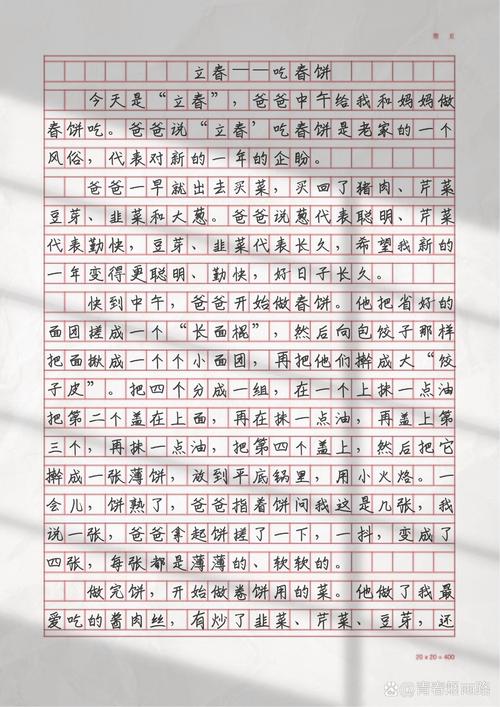 立春——吃春饼
今天是“立春”，爸爸中午给我和妈妈做
春饼吃。爸爸说“立春’吃春饼是老家的一个
风俗，代表对新的一年的企盼。
爸爸一早就出去买菜，买回了猪肉、芹菜
豆芽、韭菜和大葱。爸爸说葱代表聪明、芹菜
代表勤快，豆芽、韭菜代表长久，希望我新的
一年变得更聪明、勤快，好日子长久。
快到中午，爸爸开始做春饼。他把省好的
面团搓成一个“长面棍”，然后向包饺子那样
把面揪成一个个小面团，再把他们擀成大“饺
子皮”。把四个分成一组，在一个上抹一点油
把第二个盖在上面，再在抹一点油，再盖上第
三个，再抹一点油，把第四个盖上，然后把它
擀成一张薄饼，放到平底锅里，用小火烙。一
会儿，饼熟了，爸爸指着饼间我这是几张，我
说一张，爸爸拿起饼搓了一下，一抖，变成了
四张，每张都是薄薄的、软软的。
做完饼，开始做卷饼用的菜。他做了我最
爱吃的酱肉丝，有炒了韭菜、芹菜、豆芽，还
20 x 20 = 400